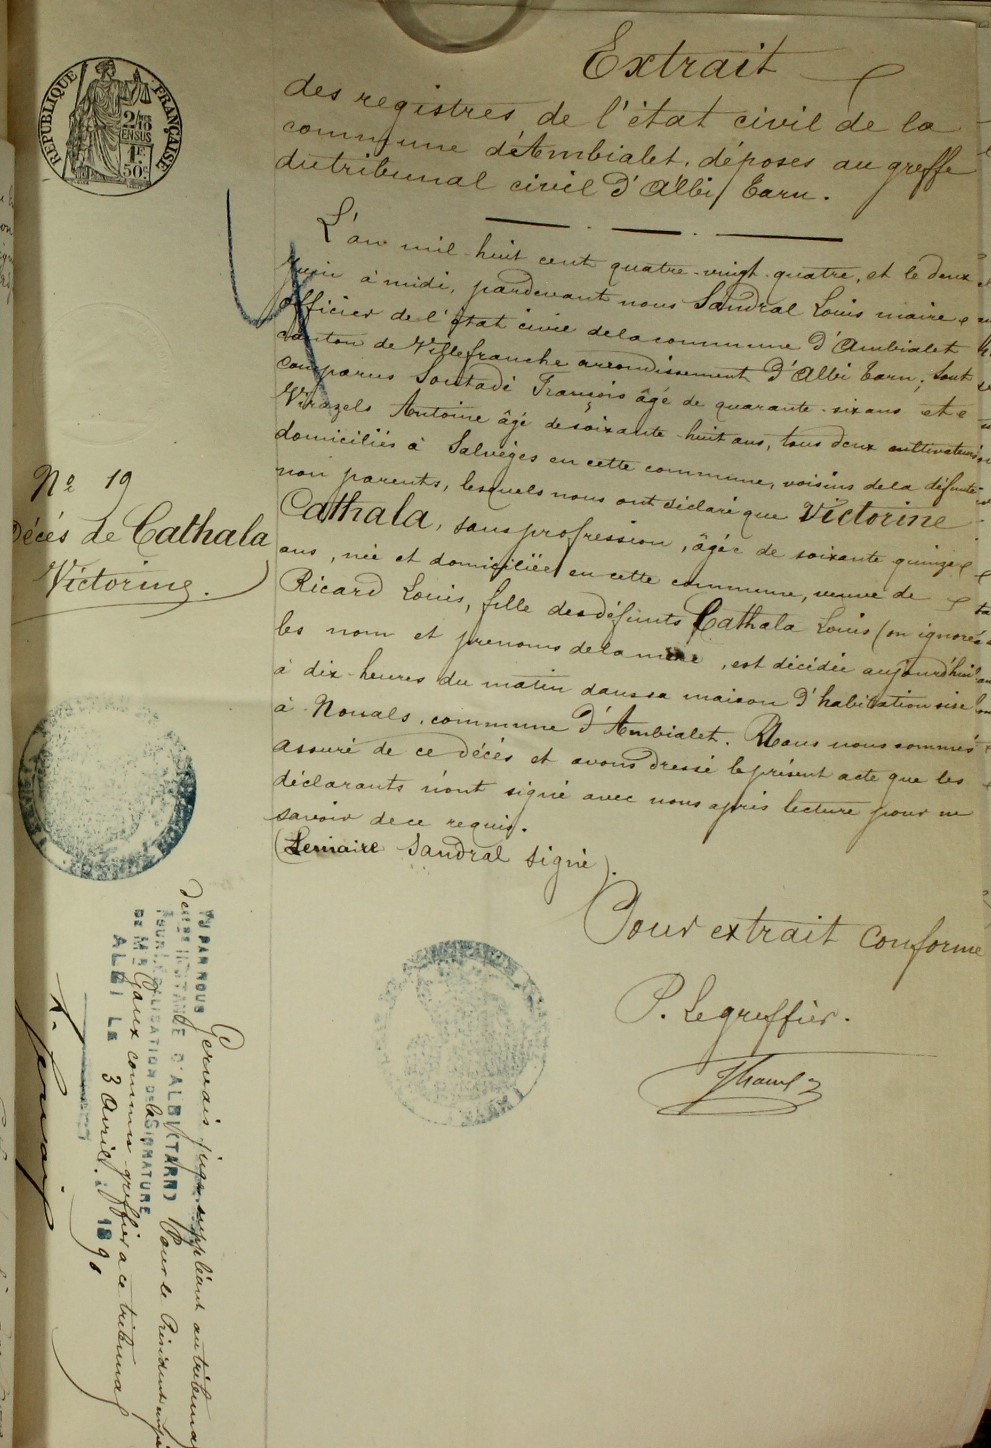 RÉPUBLIQUE FRANÇAISE
2/10 EN SUS
1F.
50c.
Extrait
des registres de l'état civil de la
commune d'Ambialet, déposés au greffe
du tribunal civil d'Albi / Tarn.
L'an mil huit cent quatre-vingt-quatre, et le deux
juin à midi, pardevant nous Sandral Louis maire
officier de l'état civil de la commune d'Ambialet
canton de Villefranche arrondissement d'Albi Tarn, sont
comparus Soutadé François âgé de quarante-six ans et
Virazels Antoine âgé de soixante-huit ans, tous deux cultivateurs
domiciliés à Salvèges en cette commune, voisins de la défunte
non parents, lesquels nous ont déclaré que Victorine
Cathala, sans profression, âgée de soixante quinze
ans, née et domiciliée en cette commune, veuve de
Ricard Louis, fille des défunts Cathala Louis (on ignore
les nom et prenoms de la mère, est décédée aujourd'hui
à dix heures du matin dans sa maison d'habitation sise
à Nouals, commune d'Ambialet. Nous nous sommes
assuré de ce décès et avons dressé le présent acte que les
déclarants n'ont signé avec nous après lecture pour ne
savoir de ce requis.
(Le maire Sandral signé).
Pour extrait conforme
P. Le greffier.
Nº 19
Décés de Cathala
Victorine.
VU PAR NOUS Gervais juge suppléant au tribunal
de 1RE INSTANCE D'ALBI (TARN) Pour le Président empê
POUR LÉGALISATION DE LA SIGNATURE
DE Mr Gaux commis greffier à ce tribunal
ALBI LE 3 Avril 1890